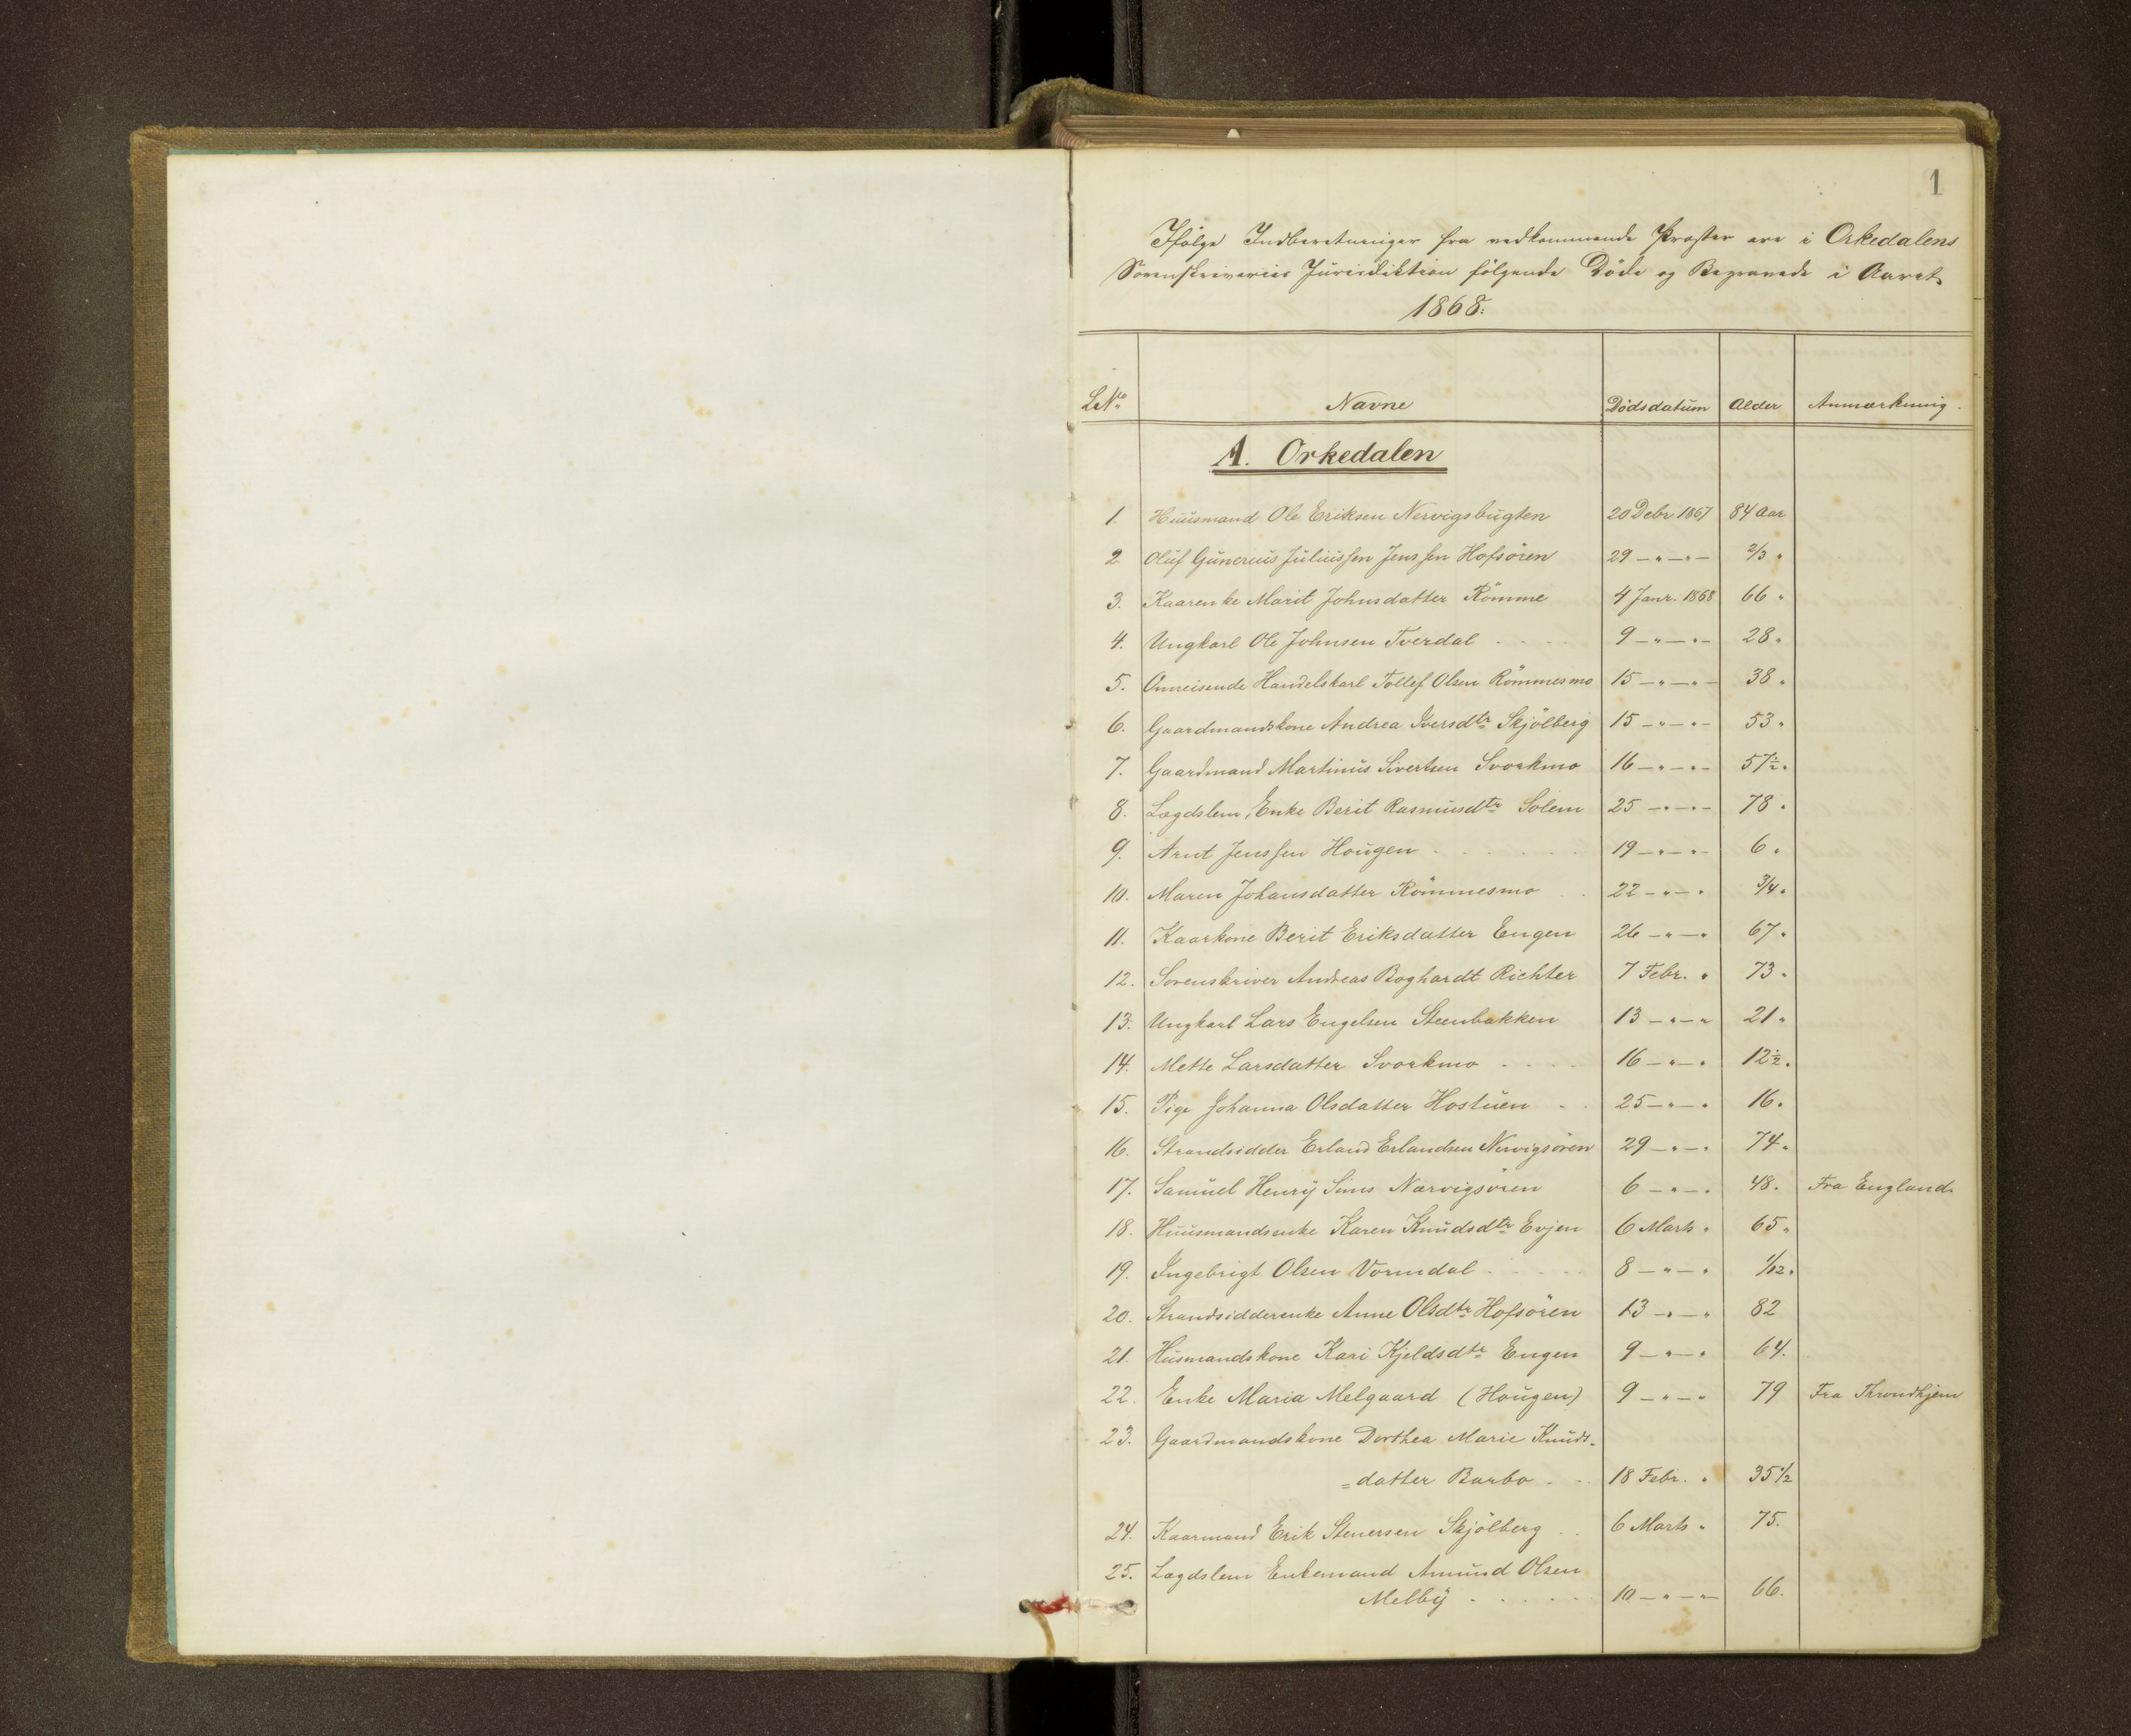 1
Ifölge Indberetninger fra vedkommende Præster ere i Orkedalens
Sorenskriveries Jurisdiktion følgende Døde og Begravede i Aaret
1868:
L.No Navne Dödsdatum Alder Anmærkning.
A. Orkedalen
1. Huusmand Ole Eriksen Nervigsbugten 20 Debr 1867 84 Aar
2. Oluf Gunerius Juliussen Jenssen Hofsören 29 – " – " – 2/3 "
3. Kaarenke Marit Johnsdatter Römme 4 Janr. 1868 66 "
4. Ungkarl Ole Johnsen Tverdal 9 – " – " – 28 "
5. Omreisende Handelskarl Tollef Olsen Römmesmo 15 – " – " – 38 "
6. Gaardmandskone Andrea Iversdtr Skjölberg 15 – " – " – 53 "
7. Gaardmand Martinus Sivertsen Svorkmo 16 – " – " – 57 1/2 "
8. Lægdslem, Enke Berit Rasmusdtr Solem 25 – " – " – 78 "
9. Arnt Jenssen Hougen 19 – " – " – 6 "
10. Maren Johansdatter Römmesmo 22 – " – " 3/4 "
11. Kaarkone Berit Eriksdatter Engen 26 – " – " 67 "
12. Sorenskriver Andreas Boghardt Richter 7 Febr. " 73 "
13. Ungkarl Lars Engelsen Steenbakken 13 – " – " 21 "
14. Mette Larsdatter Svorkmo 16 – " – " 12 1/2 "
15. Pige Johanna Olsdatter Hostuen 25 – " – " 16 "
16. Strandsidder Erland Erlandsen Nervigsören 29 – " – " 74 "
17. Samuel Henry Sims Nærvigsören 6 – " – " 48 " Fra England.
18. Huusmandsenke Karen Knudsdtr Evjen 6 Marts " 65 "
19. Ingebrigt Olsen Vormdal 8 – " – " 1/12 "
20. Strandsidderenke Anne Olsdtr Hofsören 13 – " – " 82
21. Husmandskone Kari Kjeldsdtr Engen 9 – " – " 64.
22. Enke Maria Melgaard (Hougen) 9 – " – " 79 Fra Throndhjem
23. Gaardmandskone Dorthea Marie Knuds-
=datter Barbo 18 Febr. " 35 1/2
24. Kaarmand Erik Stenersen Skjölberg 6 Marts " 75.
25. Lægdslem Enkemand Amund Olsen
Melby 10 – " – " – 66.